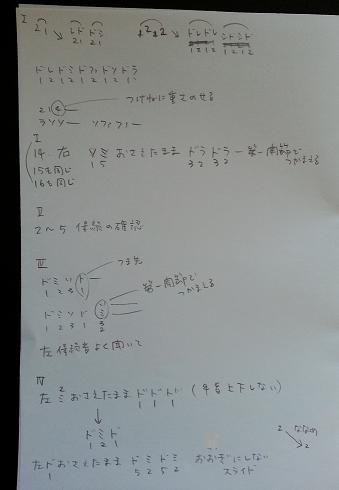 I
2 1 ↘ レド ドミ 1 2 1 2 ↘ ドレドレ ミドミド
2 1 2 1 1 2 1 2 1 2 1 2
ドレドミドファドソドラ
1 2 1 2 1 2 1 2 1 2 1
2 1 2 つけねに重さのせる
ラソソー ソファファー
I
14. 右 ソミ おさえたまま ドラ ドラ 第一関節で
1 5 3 2 3 2 つかまえる
15も同じ
16も同じ
II
2〜5 保続の確認
III
つま先
ドミソド
1 2 3 1
第一関節で
つかまえる
ドミソドミ
1 2 3 1
左 保続音よく聞いて
IV
左 ミ おさえたまま ドドド (手首上下しない)
2 1 1 1
↓
ドミド
1 2 1
2 ななめ
2
左ド おさえたまま ドミドミ おおぎにしない
1 5 2 5 2 スライド